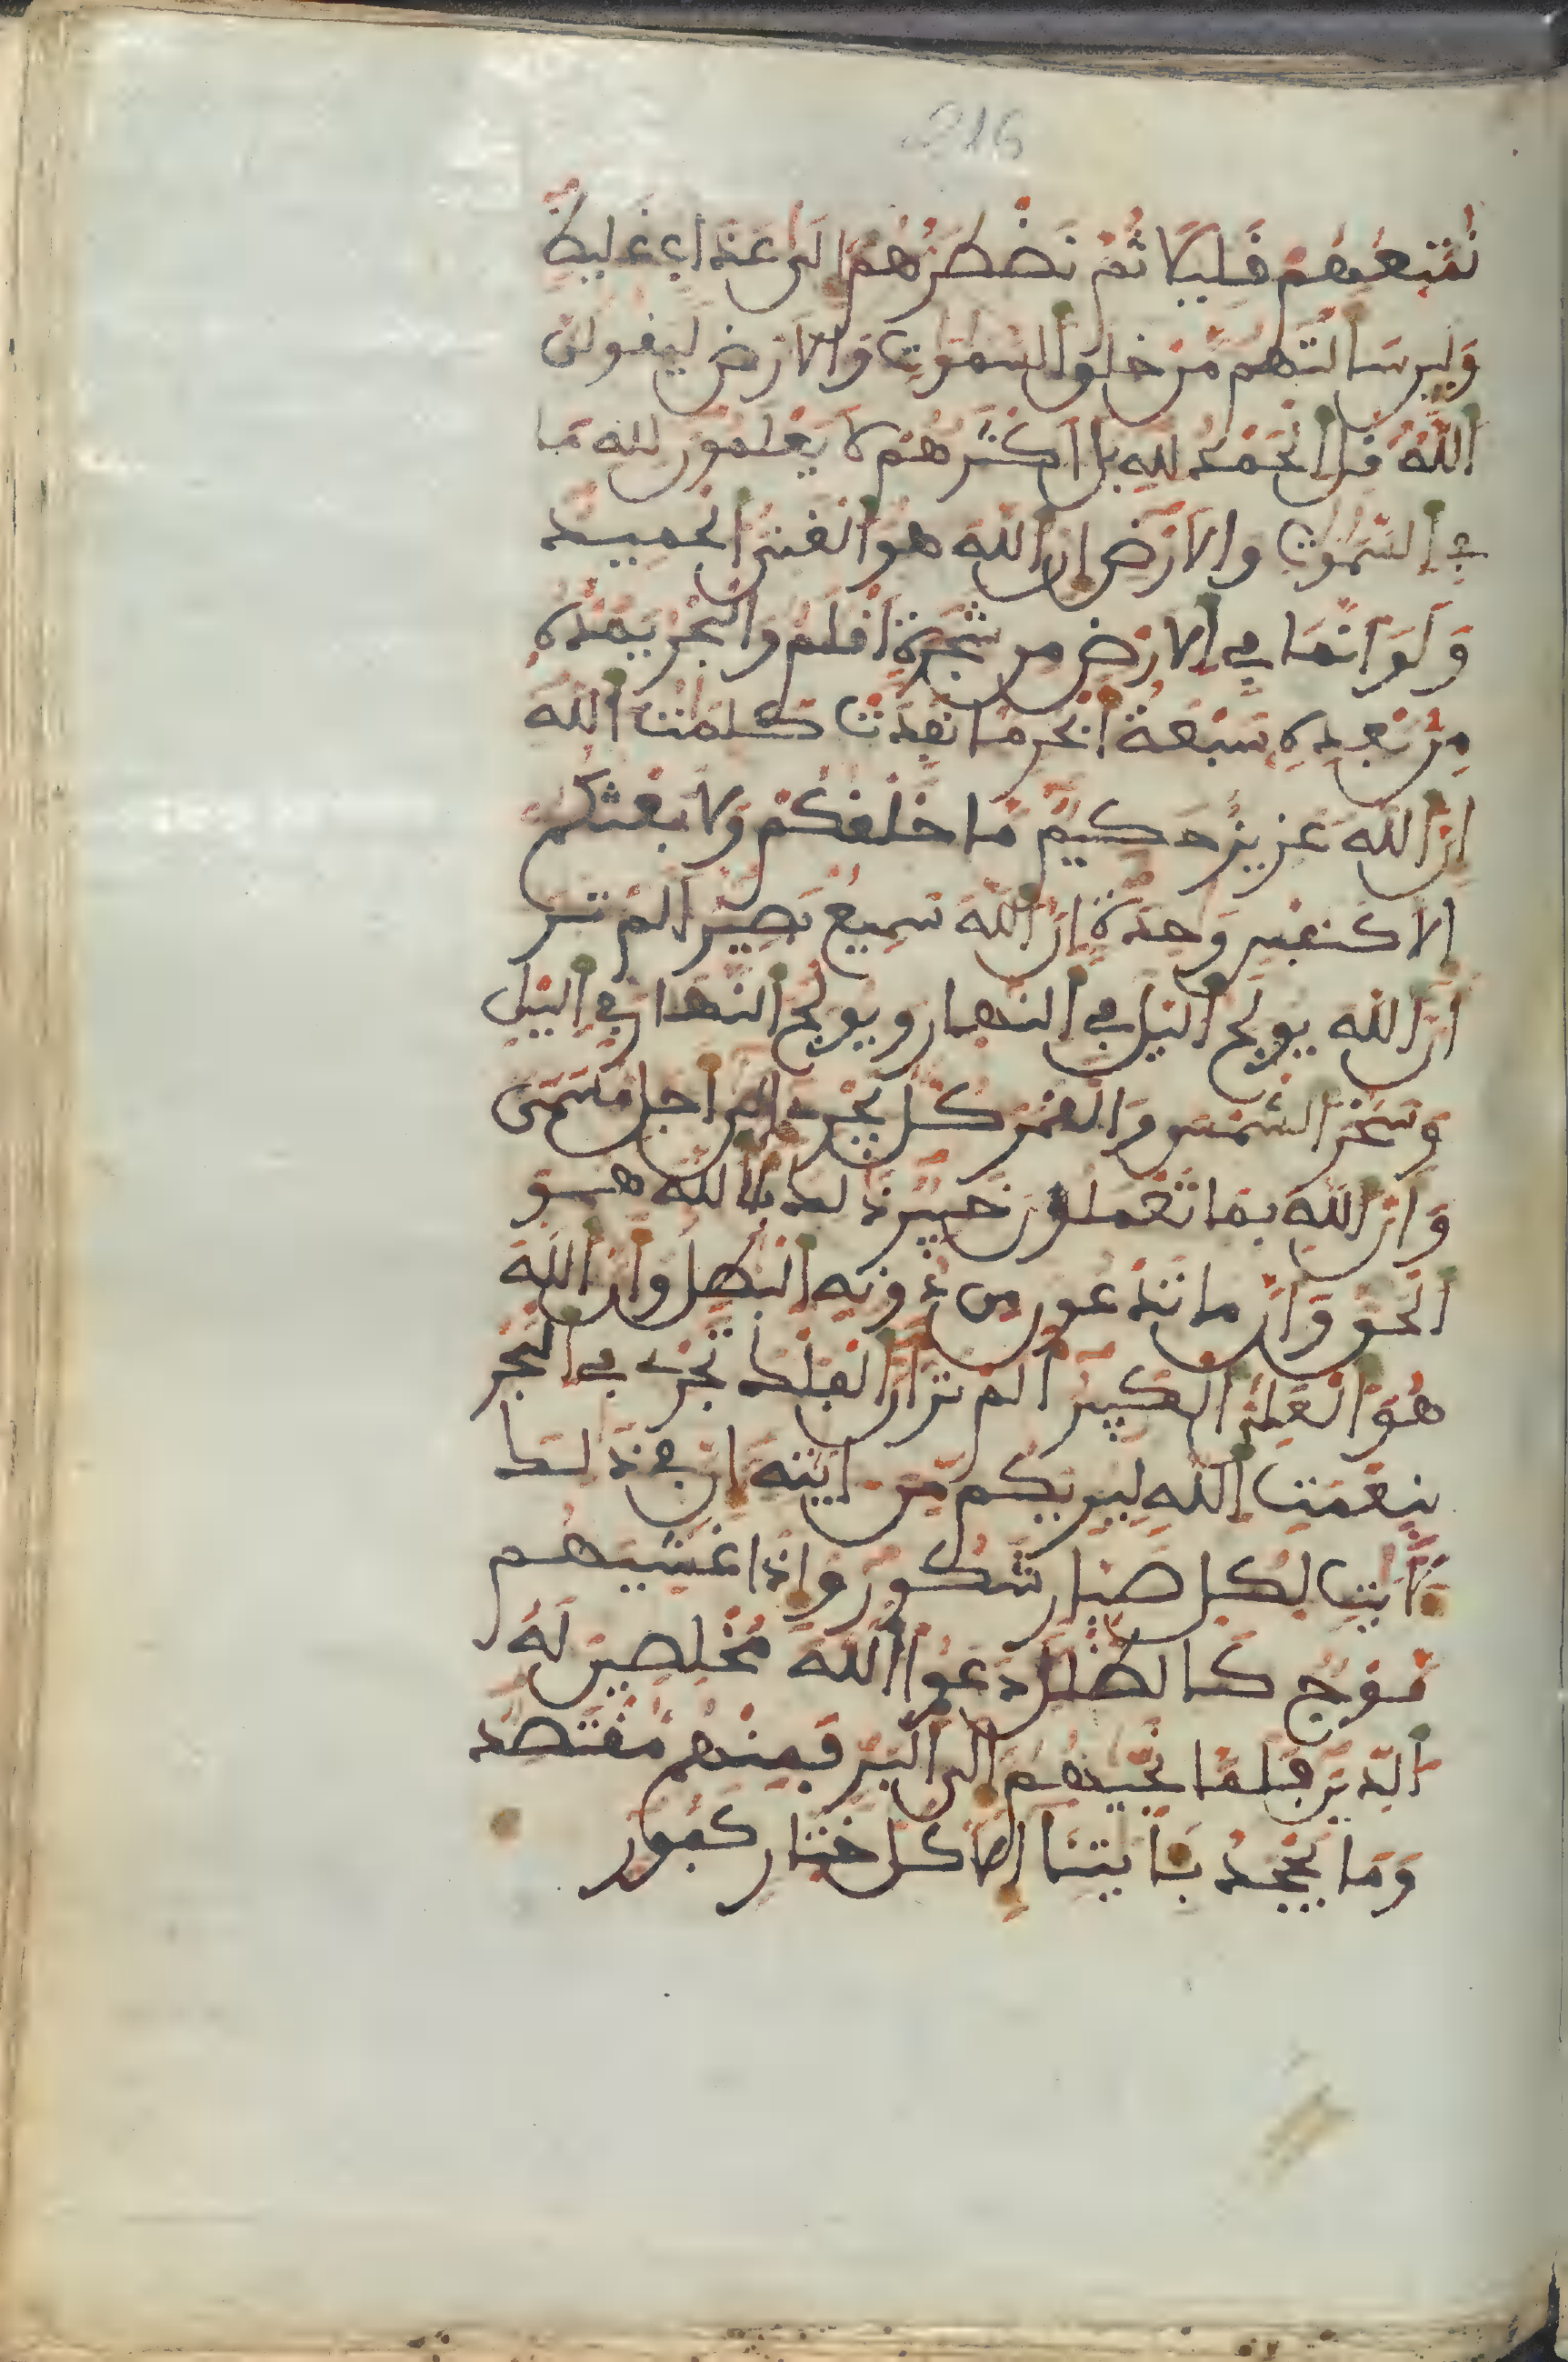 216
نُمَتِّعُهُمْ قَلِيلًا ثُمَّ نَضْطَرُّهُمْ إِلَى عَذَابٍ غَلِيظٍ
وَلَئِن سَأَلْتَهُم مَّنْ خَلَقَ السَّمَوَتِ وَالْأَرْضَ لَيَقُولُنَّ
اللَّهُ قُلِ الْحَمْدُ لِلَّهِ بَلْ أَكْثَرُهُمْ لَا يَعْلَمُونَ لِلَّهِ مَا
فِي السَّمَوَتِ وَالْأَرْضِ إِنَّ اللَّهَ هُوَ الْغَنِيُّ الْحَمِيدُ
وَلَوْ أَنَّمَا فِي الْأَرْضِ مِن شَجَرَةٍ أَقْلَمٌ وَالْبَحْرُ يَمُدُّهُ
مِنْ بَعْدِهِ سَبْعَةُ أَبْحُرٍ مَّا نَفِدَتْ كَلِمَتُ اللَّهِ
إِنَّ اللَّهَ عَزِيزٌ حَكِيمٌ مَّا خَلْقُكُمْ وَلَا بَعْثُكُمْ
إِلَّا كَنَفْسٍ وَحِدَةٍ إِنَّ اللَّهَ سَمِيعٌ بَصِيرٌ أَلَمْ تَرَ
أَنَّ اللَّهَ يُولِجُ الَّيْلَ فِي النَّهَارِ وَيُولِجُ النَّهَارَ فِي الَّيْلِ
وَسَخَّرَ الشَّمْسَ وَالْقَمَرَ كُلٌّ يَجْرِي إِلَى أَجَلٍ مُّسَمًّى
وَأَنَّ اللَّهَ بِمَا تَعْمَلُونَ خَبِيرٌ ذَلِكَ بِأَنَّ اللَّهَ هُوَ
الْحَقُّ وَأَنَّ مَا تَدْعُونَ مِن دُونِهِ الْبَطِلُ وَأَنَّ اللَّهَ
هُوَ الْعَلِيُّ الْكَبِيرُ أَلَمْ تَرَ أَنَّ الْفُلْكَ تَجْرِي فِي الْبَحْرِ
بِنِعْمَتِ اللَّهِ لِيُرِيَكُم مِّنْ ءَايَتِهِ إِنَّ فِي ذَلِكَ
لَأَيَتٍ لِّكُلِّ صَبَّارٍ شَكُورٍ وَإِذَا غَشِيَهُم
مَّوْجٌ كَالظُّلَلِ دَعَوُا اللَّهَ مُخْلِصِينَ لَهُ
الدِّينَ فَلَمَّا نَجَّيهُمْ إِلَى الْبَرِّ فَمِنْهُم مُّقْتَصِدٌ
وَمَا يَجْحَدُ بِـَٔايَتِنَا إِلَّا كُلُّ خَتَّارٍ كَفُورٍ